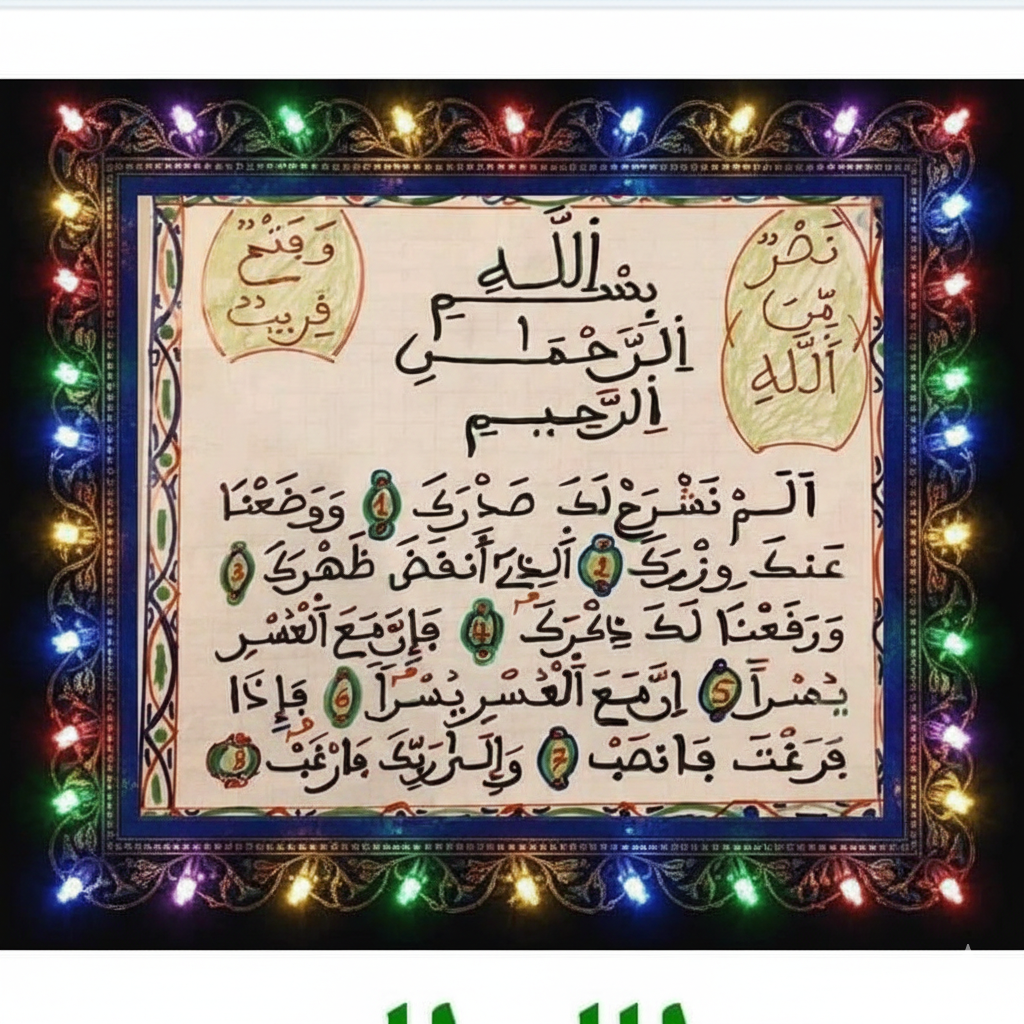 نَصْرٌ
مِّنَ
اَللَّهِ
وَفَتْحٌ
قَرِيبٌ
بِسْمِ اِللَّهِ
اِلرَّحْمَٰنِ
اِلرَّحِيمِ
أَلَمْ نَشْرَحْ لَكَ صَدْرَكَ 1 وَوَضَعْنَا
عَنكَ وِزْرَكَ 2 اَلذِے أَنقَضَ ظَهْرَكَ 3
وَرَفَعْنَا لَكَ ذِكْرَكَ 4 فَإِنَّ مَعَ اَلْعُسْرِ
يُسْراً 5 إِنَّ مَعَ اَلْعُسْرِ يُسْراً 6 فَإِذَا
فَرَغْتَ فَانصَبْ 7 وَإِلَىٰ رَبِّكَ فَارْغَبْ 8